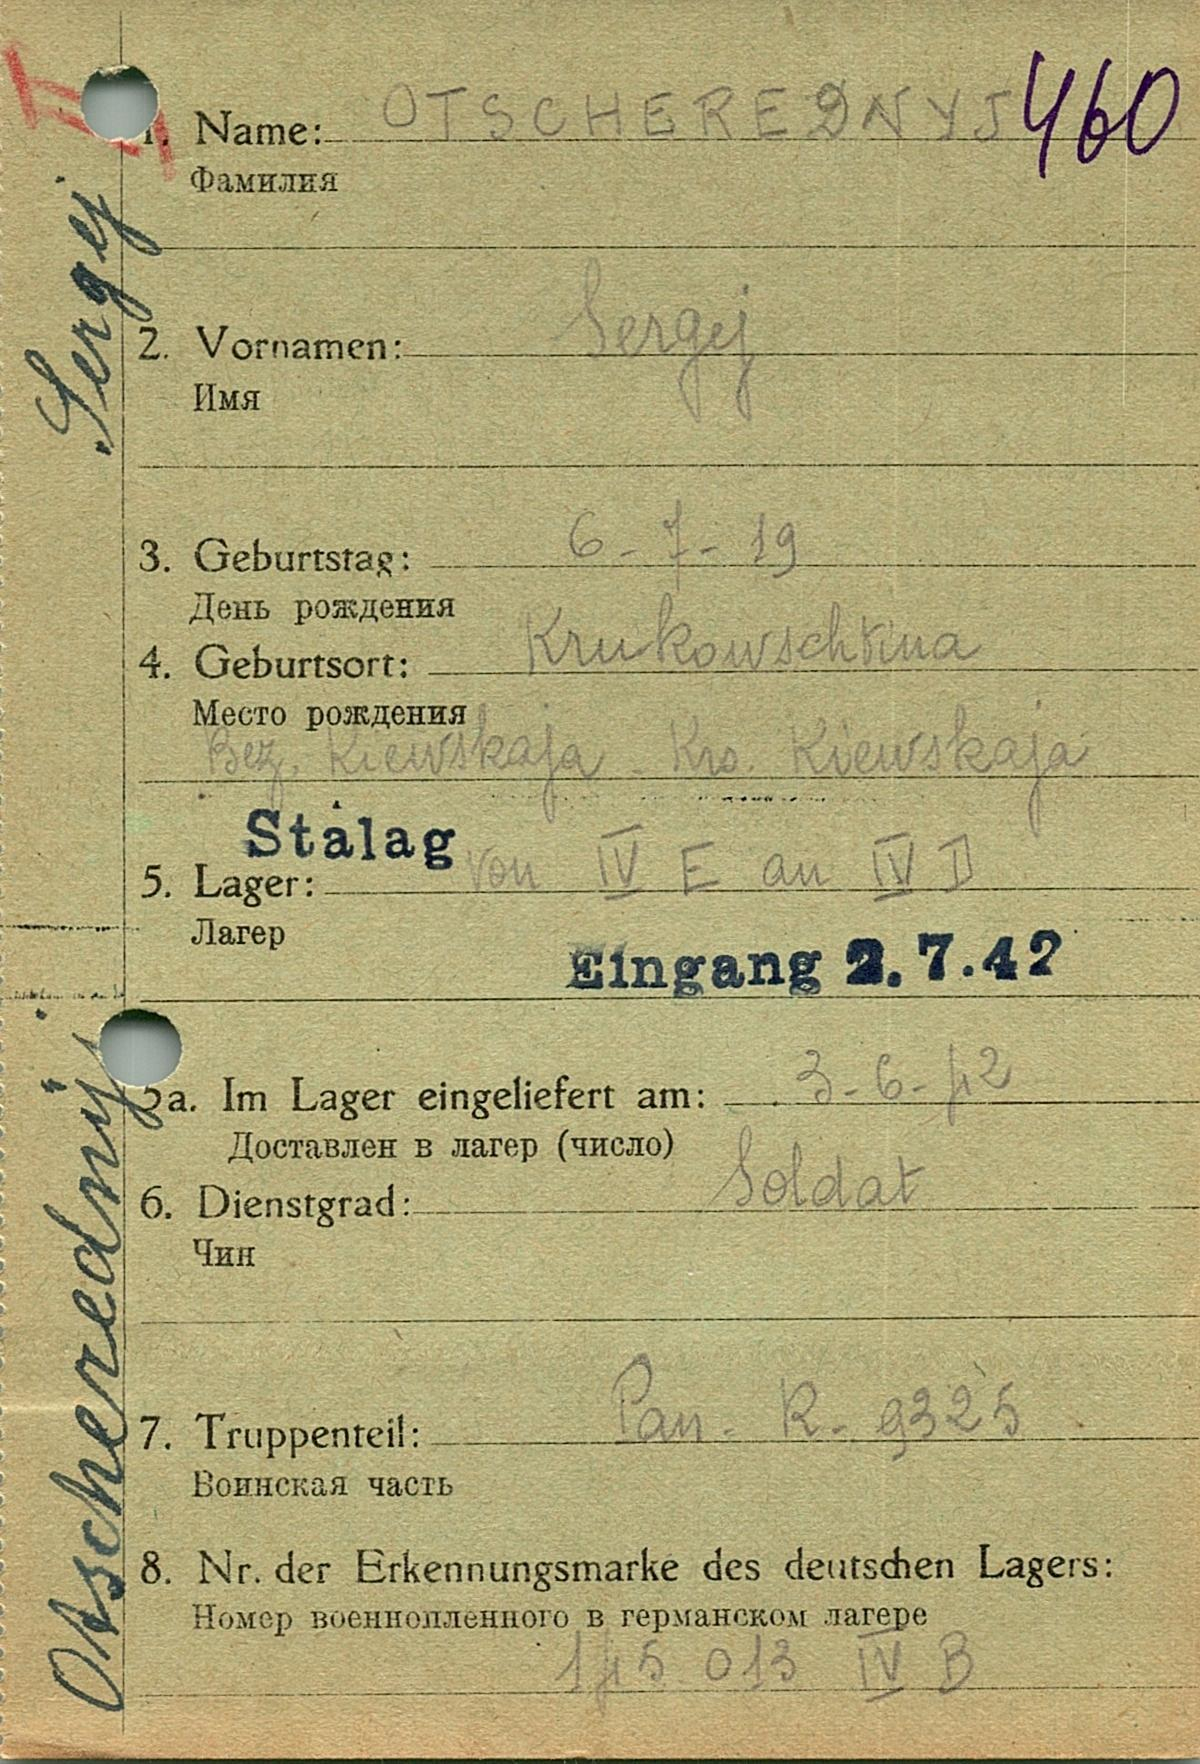 1. Name: OTSCHEREDNYJ 460
Фамилия
2. Vornamen: Sergej
Имя
3. Geburtstag: 6-7-19
День рождения
4. Geburtsort: Krukowschtina
Место рождения
Bez. Kiewskaja - Krs. Kiewskaja
Stalag
5. Lager: von IV E an IV D
Лагер
Eingang 2.7.42
5a. Im Lager eingeliefert am: 3-6-42
Доставлен в лагер (число)
6. Dienstgrad: Soldat
Чин
7. Truppenteil: Pan. R. 9325
Воинская часть
8. Nr. der Erkennungsmarke des deutschen Lagers:
Номер военнопленного в германском лагере
145 013 IV B
Otscherednyj Sergej